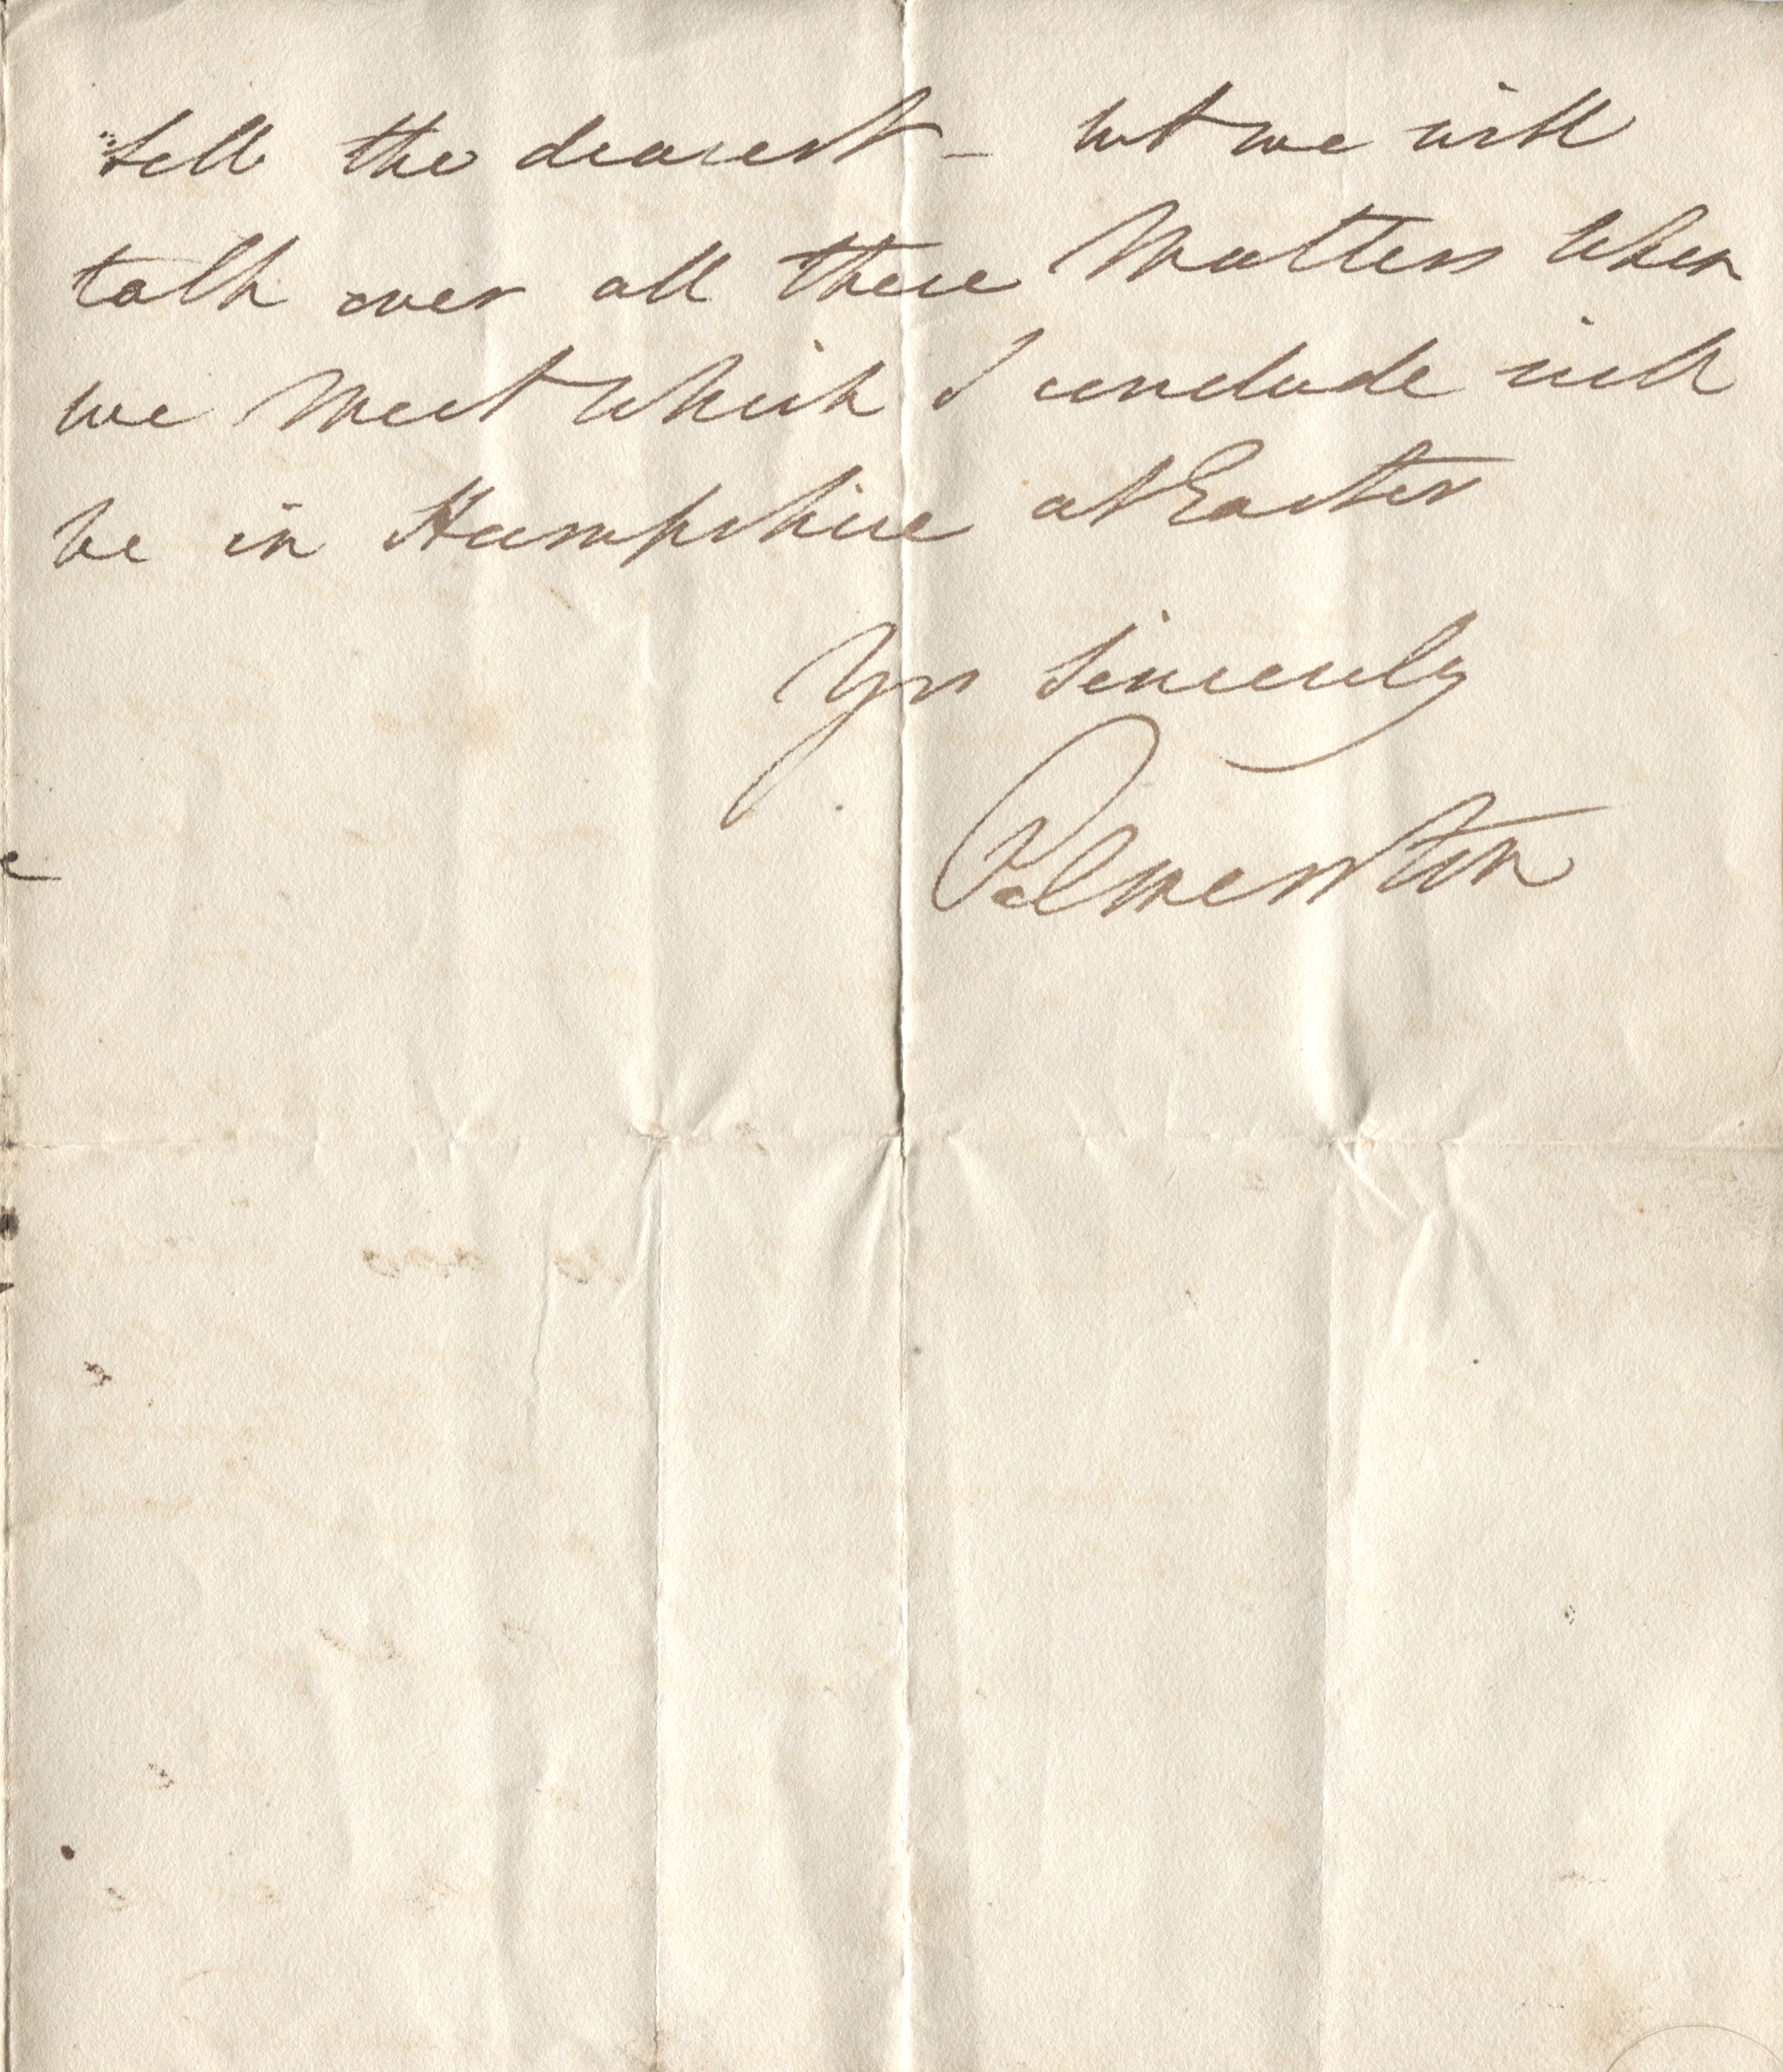 sell the dearest – but we will
talk over all these Matters when
we Meet which I conclude will
be in Hampshire at Easter
Yrs sincerely
Palmerston